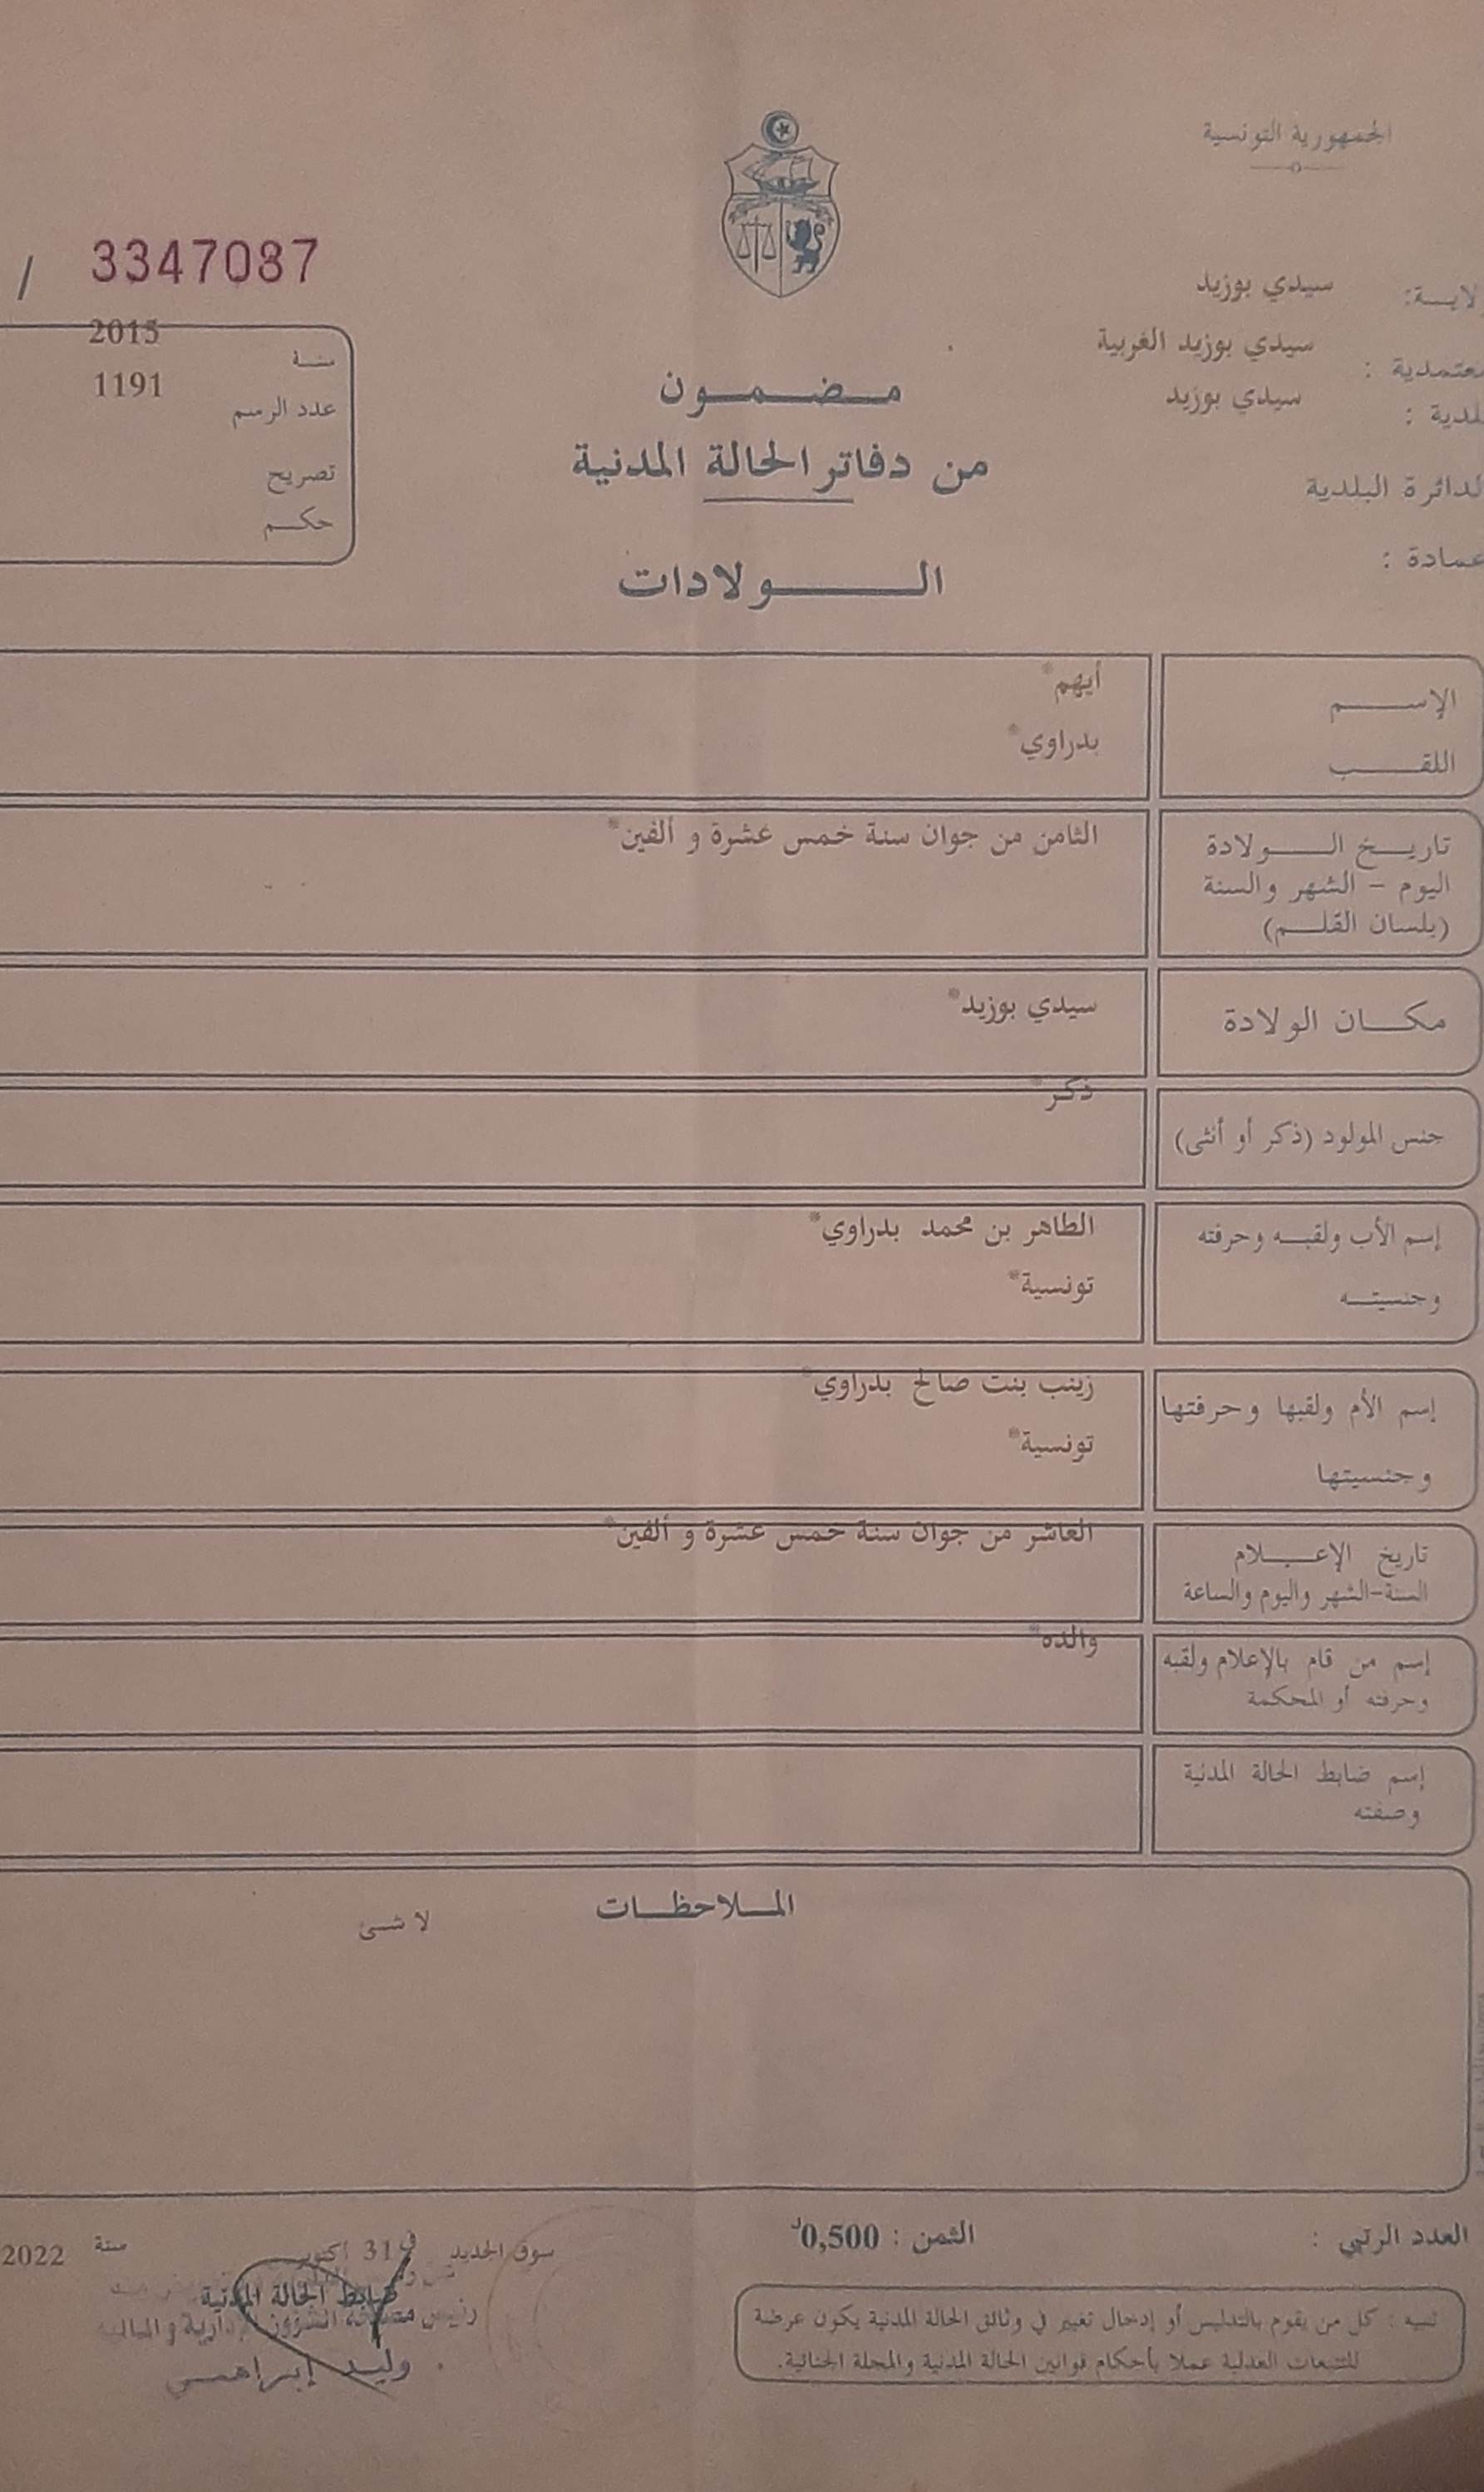 الجمهورية التونسية
3347087 /
لايـة: سيدي بوزيد
معتمدية : سيدي بوزيد الغربية
لدية : سيدي بوزيد
لدائرة البلدية
عمادة :
سنة 2015
عدد الرسم 1191
تصريح
حكم
مضمون
من دفاتر الحالة المدنية
الولادات
الإسم أيهم*
اللقب بدراوي*
تاريخ الولادة الثامن من جوان سنة خمس عشرة و ألفين*
اليوم - الشهر والسنة
(بلسان القلم)
مكان الولادة سيدي بوزيد*
جنس المولود (ذكر أو أنثى) ذكر*
إسم الأب ولقبه وحرفته الطاهر بن محمد بدراوي*
وجنسيته تونسية*
إسم الأم ولقبها وحرفتها زينب بنت صالح بدراوي*
وجنسيتها تونسية*
تاريخ الإعلام العاشر من جوان سنة خمس عشرة و ألفين*
السنة-الشهر واليوم والساعة
إسم من قام بالإعلام ولقبه والده*
وحرفته أو المحكمة
إسم ضابط الحالة المدنية
وصفته
الملاحظات
لا شئ
العدد الرتبي :
الثمن : 0,500د
سوق الجديد في 31 أكتوبر سنة 2022
ضابط الحالة المدنية
رئيس مصلحة الشؤون الإدارية و المالية
وليد إبراهمي
تنبيه : كل من يقوم بالتدليس أو إدخال تغيير في وثائق الحالة المدنية يكون عرضة
للتتبعات العدلية عملا بأحكام قوانين الحالة المدنية والمجلة الجنائية.